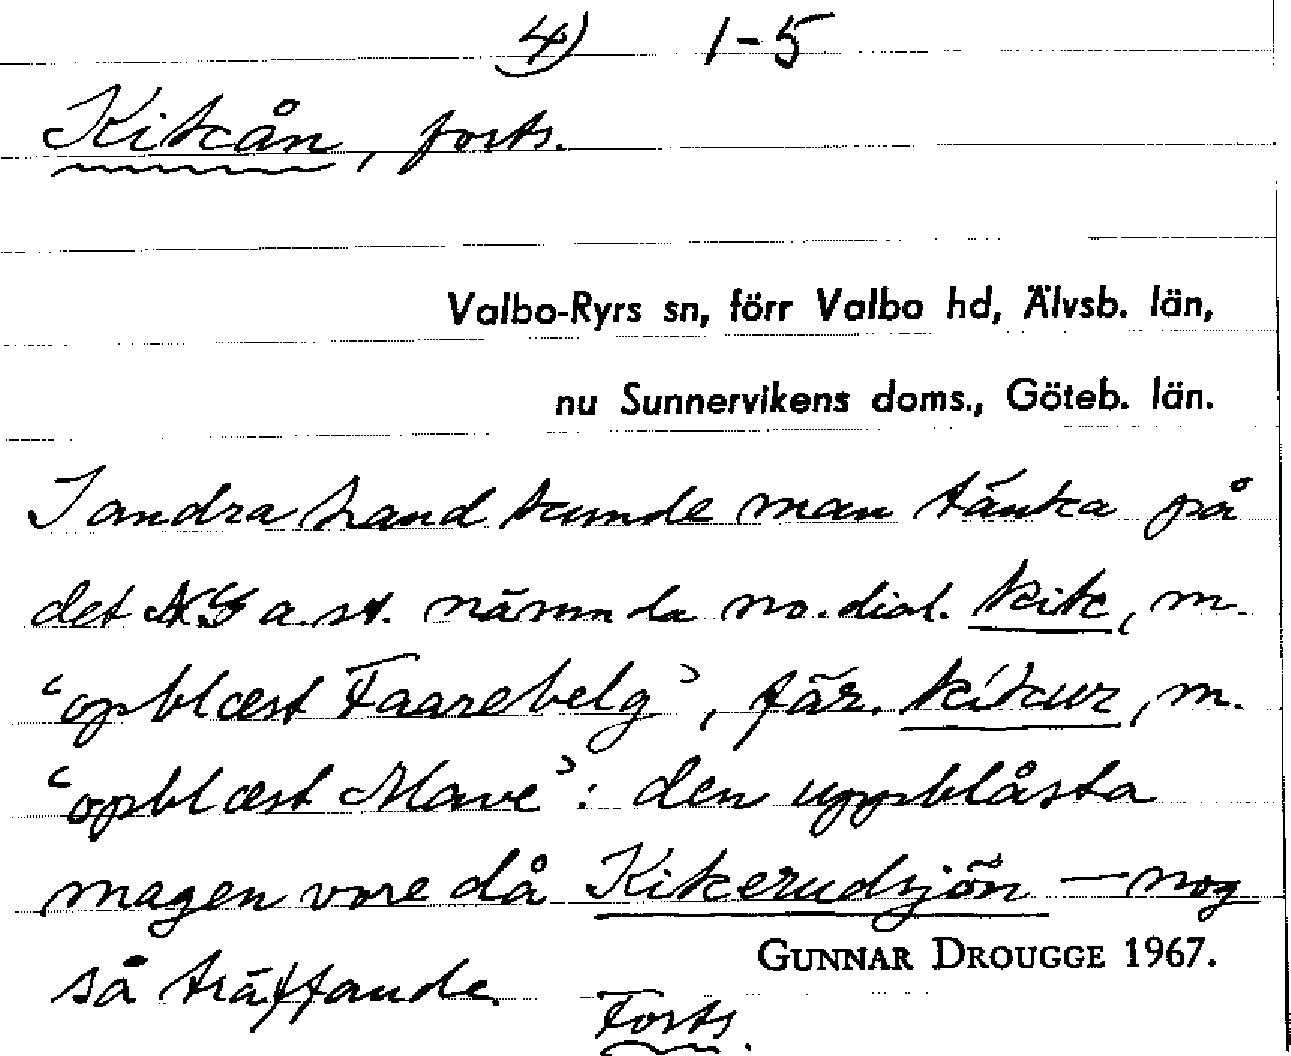 4) 1-5
Kikån, forts.
Valbo-Ryrs sn, förr Valbo hd, Älvsb. län,
nu Sunnervikens doms., Göteb. län.
I andra hand kunde man tänka på
det NG a. st. nämnda no. dial. kik, m.
“opblæst Faarebelg”, fär. kíkur, m.
“opblæst Mave”: den uppblåsta
magen vore då Kikerudsjön – nog
så träffande.
GUNNAR DROUGGE 1967.
Forts.